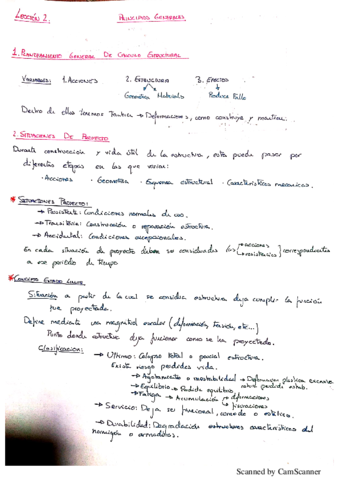 Lección 2. Principios Generales
1. Planteamiento General De Cálculo Estructural
Variables: 1. Acciones 2. Estructura 3. Efectos
Geometría Materiales Produce Fallo
Dentro de ellos tenemos → Deformaciones, como construye y
2. Situaciones De Proyecto
Durante construcción y vida útil de la estructura, esta puede pasar por
diferentes etapas en las que varían:
· Acciones · Geometría · Esquema estructural · Características mecánicas.
* Situaciones Proyecto:
→ Persistente: Condiciones normales de uso.
→ Transitoria: Construcción o reparación estructura.
→ Accidental: Condiciones excepcionales.
En cada situación de proyecto deben se considerados las acciones correspondientes
resistencias
a ese periodo de tiempo
* Concepto Estado Límite
Situación a partir de la cual se considera estructura deja cumplir la función
fue proyectada.
Define mediante una magnitud escalar (deformación, Tensión, etc...)
Punto donde estructura deja funcionar como se ha proyectado.
Clasificación: → Último: Colapso total o parcial estructura.
Existe riesgo perdidas vida.
→ Agotamiento o inestabilidad → Deformación plástica excesiva
→ Equilibrio → Perdida equilibrio,
→ Fatiga → Acumulación deformaciones
fisuraciones
→ Servicio: Deja se funcional, comodo o estético.
→ Durabilidad: Degradación estructurales características del
hormigón o armaduras.
Scanned by CamScanner